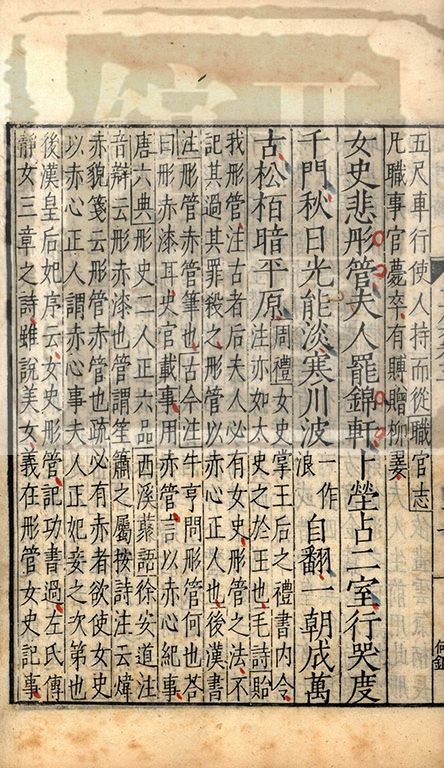 五尺車行使人持而從職官志
凡職事官薨卒有賻贈柳翣
女史悲彤管夫人罷錦軒卜塋占二室行哭度
千門秋日光能淡寒川波一作浪自翻一朝成萬
古松栢暗平原周禮女史掌王后之禮書内令
注亦如太史之於王也毛詩貽
我彤管注古者后夫人必有女史彤管之法不
記其過其罪殺之彤管以赤心正人也後漢書
注彤管赤管筆也古今注牛亨問彤管何也荅
曰彤赤漆耳史官載事用赤管言以赤心紀事
唐六典彤史二人正六品西溪藂語徐安道注
音辯云彤赤漆也管謂笙簫之屬按詩注云煒
赤貌箋云彤管赤管也疏必有赤者欲使女史
以赤心正人謂赤心事夫人正妃妾之次第也
後漢皇后妃序云女史彤管記功書過左氏傳
靜女三章之詩雖說美女義在彤管女史記事